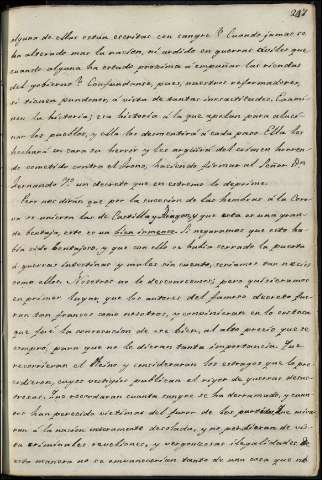 247
alguna de ellas están escritas con sangre? Cuando jamas se
ha alterado mas la nacion, ni ardido en guerras civiles que
cuando alguna ha estado proxima á empuñar las riendas
del gobierno? Confundanse, pues, nuestros reformadores,
si tienen pundonor, á vista de tantas inexactitudes. Exami-
nen la historia; esa historia á la que apelan para aluci-
nar los pueblos, y ella les desmentirá á cada paso. Ella les
hechará en cara su herror y les argüirá del crimen horren-
do cometido contra el trono, haciendo firmar al Señor Dn
Fernando 7º un decreto que en estremo le deprime.
Pero nos dirán que por la sucesion de las hembras á la Coro-
na se unieron las de Castilla y Aragon, y que esta es una gran-
de ventaja, esto es un bien inmenso. Si negaramos que esto ha-
bia sido ventajoso, y que con ello se habia cerrado la puerta
á guerras intestinas y males sin cuento, seriamos tan necios
como ellos. Nosotros no le desconocemos; pero quisieramos
en primer lugar, que los autores del famoso decreto fue-
ran tan francos como nosotros, y convinieran en lo costosa
que fué la consecucion de ese bien, al alto precio que se
compró, para que no le dieran tanta importancia. Que
recorrieran el Reino y consideraran los estragos que le pre-
cedieron, cuyos vestigios publican el rigor de guerras desas-
trosas. Que recordaran cuanta sangre se ha derramado, y cuan-
tos han perecido victimas del furor de los partidos. Que mira-
ran á la nacion enteramente desolada, y no perdieran de vis-
ta criminales revueltas, y vergonzosas ilegalidades. De
esta manera no se envanecerian tanto de una cosa que no